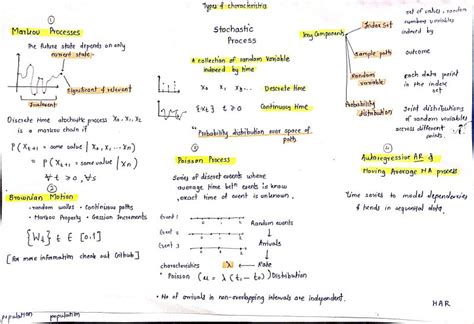 Types & characteristics
①
Markov Processes
The future state depends on only
current state.
Significant & relevant
Irrelevant
Discrete time stochastic process X₀, X₁, X₂
is a markov chain if
P (X t+1 = some value | X₀, X₁, ... Xn)
= P (X t+1 = some value | Xn)
∀ t ≥ 0, ∀ s
②
Brownian Motion
• random walks • Continuous paths
• Markov Property • Gaussian Increments
{W t} t ∈ [0,1]
[For more information check out Github]
population population
Stochastic
Process
A collection of random variable
indexed by time
X₀ X₁ X₂ Discrete time
{X t} t ≥ 0 Continuous time
"Probability distribution over space of
paths"
Poisson Process
Series of discrete events where
average time bet events is known
exact time of event is unknown.
Event 1
Event 2
Event 3
Random events
Arrivals
characteristics λ Rate
• Poisson (μ = λ (t₁ - t₀) Distribution
• No of arrivals in non-overlapping intervals are independent.
Key Components
Index Set
set of values, random
numbers variables
indexed by
Sample path outcome
Random
variable
each data point
in the index
set
Probability
distribution
Joint distributions
of random variables
across different
points.
④
Autoregressive AR &
Moving Average MA process
Time series to model dependencies
& trends in sequential data.
HAR